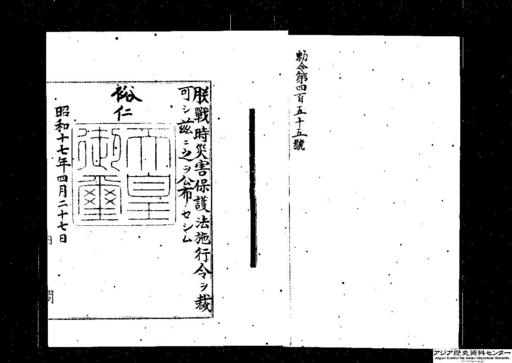 勅令第四百五十五號
朕戰時災害保護法施行令ヲ裁
可シ茲ニ之ヲ公布セシム
裕仁
天皇御璽
昭和十七年四月二十七日
内閣
アジア歴史資料センター
Japan Center for Asian Historical Records